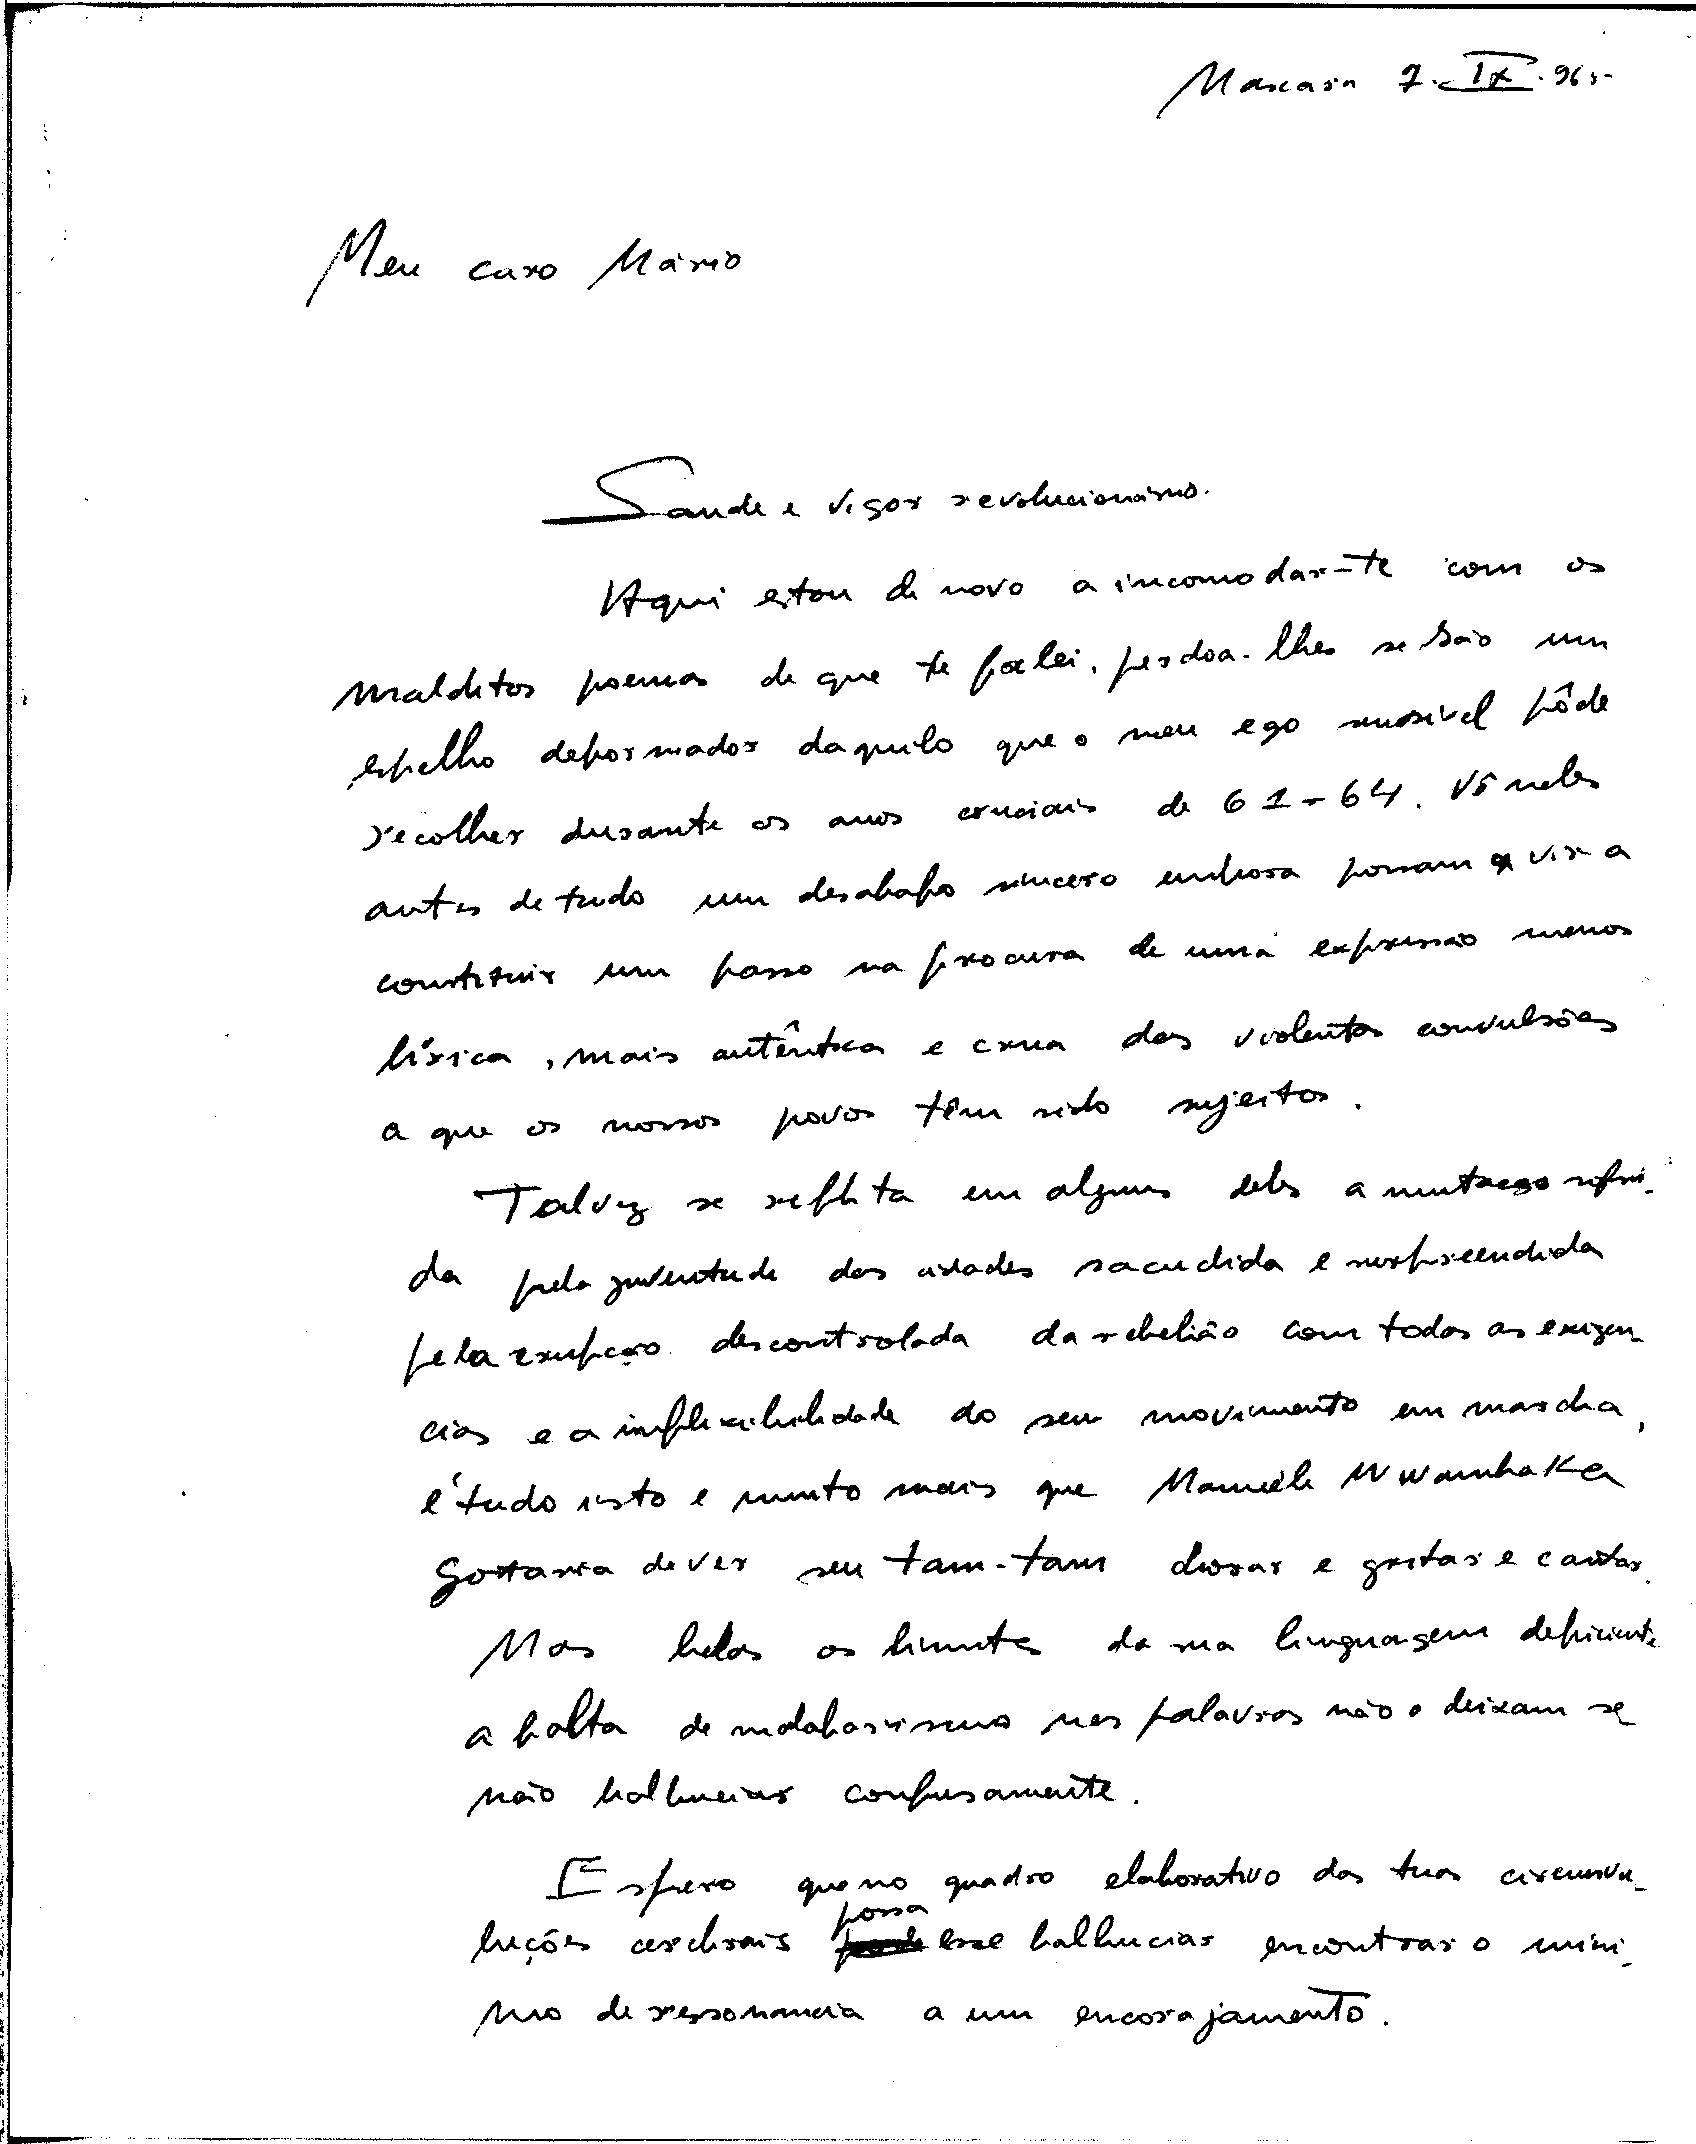 Mascara 7.IX.965
Meu caro Mário
Saude e vigor revolucionário.
Aqui estou de novo a incomodar-te com os
malditos poemas de que te falei, perdoa-lhes se são um
espelho deformador daquilo que o meu ego sensivel pôde
recolher durante os anos cruciais de 61-64. Vê neles
antes de tudo um desabafo sincero embora possam vir a
constituir um passo na procura de uma expressão menos
lírica, mais autêntica e crua das violentas convulsões
a que os nossos povos têm sido sujeitos.
Talvez se reflita em alguns deles a mutação sofri-
da pela juventude das cidades sacudida e surpreendida
pela erupção descontrolada da rebelião com todas as exigen-
cias e a inflexibilidade do seu movimento em marcha,
é tudo isto e muito mais que
gostaria de ver seu tam-tam chorar e gritar e cantar.
Mas helas os limites da sua linguagem deficiente
a falta de malabarismo nas palavras não o deixam se
não balbuciar confusamente.
Espero que no quadro elaborativo das tuas circunvu-
luções cerebrais possa esse balbuciar encontrar o mini-
mo de ressonancia a um encorajamento.